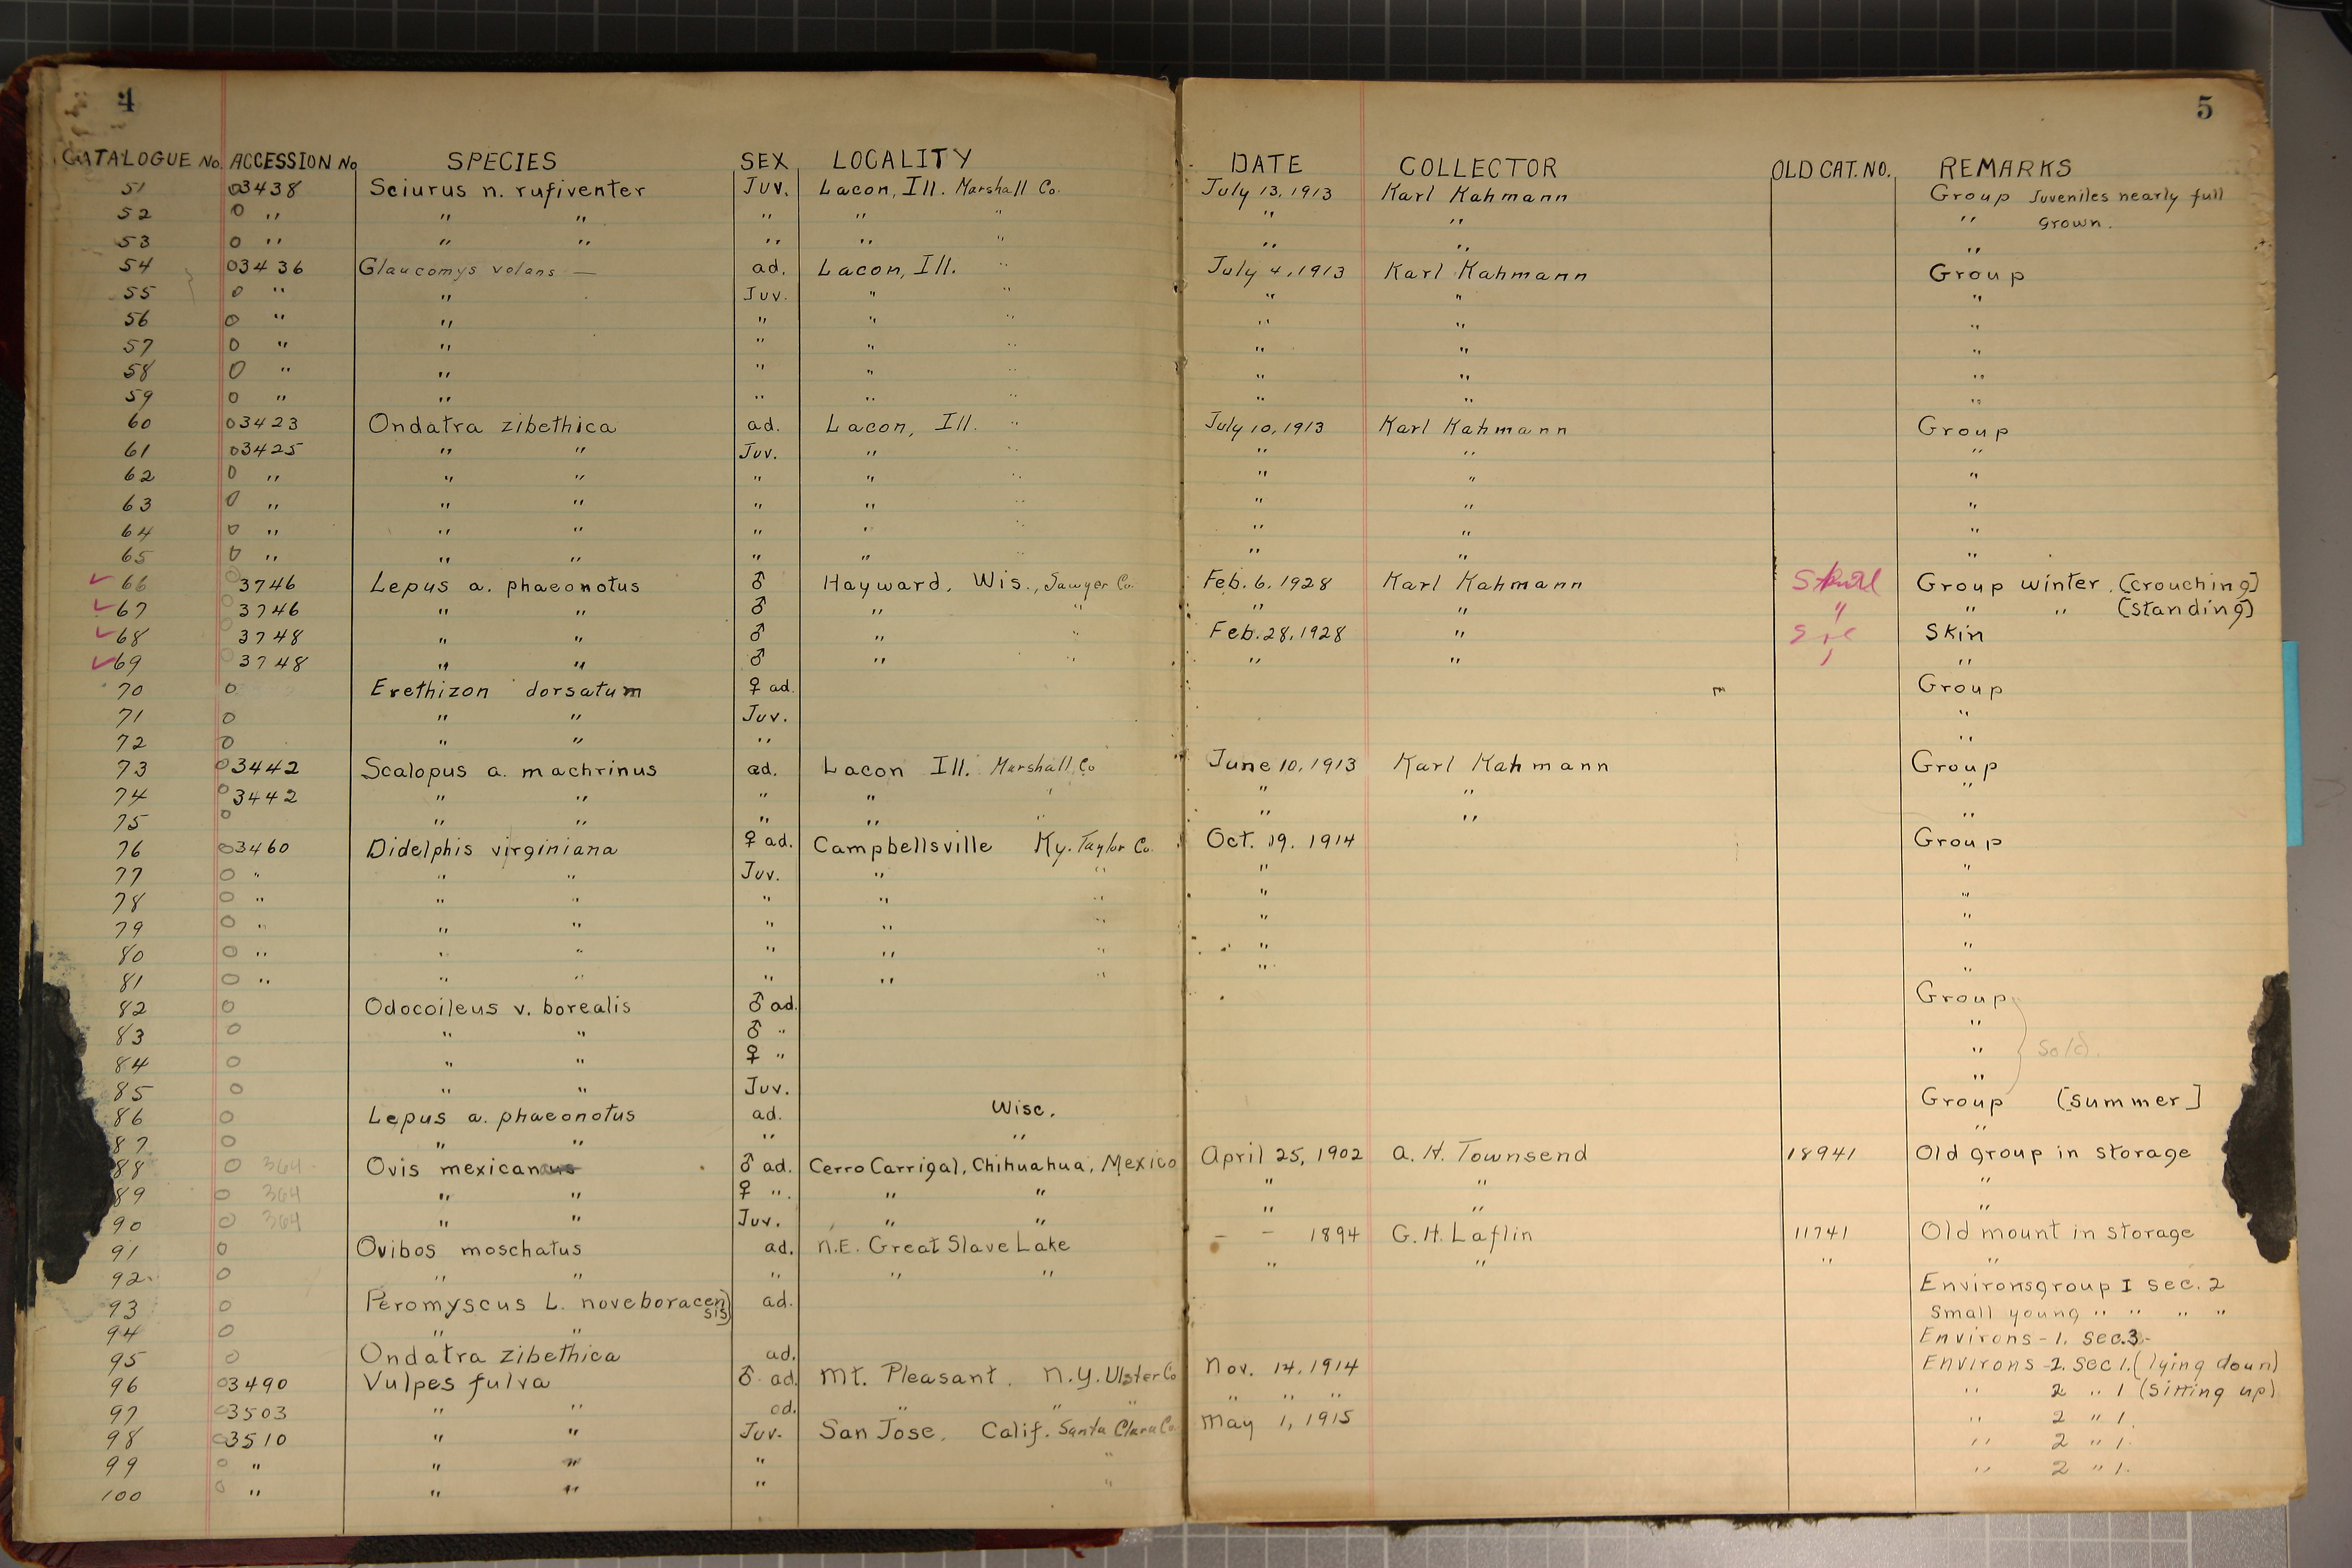 4
5
CATALOGUE No. ACCESSION No SPECIES SEX LOCALITY DATE COLLECTOR OLD CAT. NO. REMARKS
51 03438 Sciurus n. rufiventer Juv. Lacon, Ill. Marshall Co. July 13, 1913 Karl Kahmann Group Juveniles nearly full
52 0 " " " " " " " " " grown.
53 0 " " " " " " " " "
54 03436 Glaucomys volans — ad. Lacon, Ill. " July 4, 1913 Karl Kahmann Group
55 0 " " Juv. " " " " "
56 0 " " " " " " " "
57 0 " " " " " " " "
58 0 " " " " " " " "
59 0 " " " " " " " "
60 03423 Ondatra zibethica ad. Lacon, Ill. " July 10, 1913 Karl Kahmann Group
61 03425 " " Juv. " " " " "
62 0 " " " " " " " " "
63 0 " " " " " " " " "
64 0 " " " " " " " " "
65 0 " " " " " " " " "
✓ 66 3746 Lepus a. phaeonotus ♂ Hayward, Wis., Sawyer Co. Feb. 6, 1928 Karl Kahmann Group winter. [crouching]
✓ 67 3746 " " ♂ " " " " " " " [standing]
✓ 68 3748 " " ♂ " " Feb. 28, 1928 " Skin
✓ 69 3748 " " ♂ " " " " "
70 0 Erethizon dorsatum ♀ ad. Group
71 0 " " Juv. "
72 0 " " " "
73 03442 Scalopus a. machrinus ad. Lacon Ill. Marshall Co June 10, 1913 Karl Kahmann Group
74 03442 " " " " " " " "
75 0 " " " " " " " "
76 03460 Didelphis virginiana ♀ ad. Campbellsville Ky. Taylor Co. Oct. 19. 1914 Group
77 0 " " " Juv. " " " "
78 0 " " " " " " " "
79 0 " " " " " " " "
80 0 " " " " " " " "
81 0 " " " " " " " "
82 0 Odocoileus v. borealis ♂ ad. Group
83 0 " " ♂ " "
84 0 " " ♀ " " Sold.
85 0 " " Juv. "
86 0 Lepus a. phaeonotus ad. Wisc. Group [summer]
87 0 " " " " "
88 0 364 Ovis mexicanus ♂ ad. Cerro Carrigal, Chihuahua, Mexico April 25, 1902 A. H. Townsend 18941 Old group in storage
89 0 364 " " ♀ " " " " " "
90 0 364 " " Juv. " " " " "
91 0 Ovibos moschatus ad. N.E. Great Slave Lake - - 1894 G. H. Laflin 11741 Old mount in storage
92 0 " " " " " " " " "
93 0 Peromyscus L. noveboracensis ad. Environsgroup I sec. 2
94 0 " " Small young " " " "
95 0 Ondatra zibethica ad. Environs-1. Sec.3-
96 03490 Vulpes fulva ♂ ad. Mt. Pleasant. N.Y. Ulster Co Nov. 14, 1914 Environs-2. Sec 1. (lying down)
97 03503 " " ad. " " " " " " " 2 " 1 (sitting up)
98 03510 " " Juv. San Jose, Calif. Santa Clara Co. May 1, 1915 " 2 " 1.
99 0 " " " " " " 2 " 1.
100 0 " " " " " " 2 " 1.